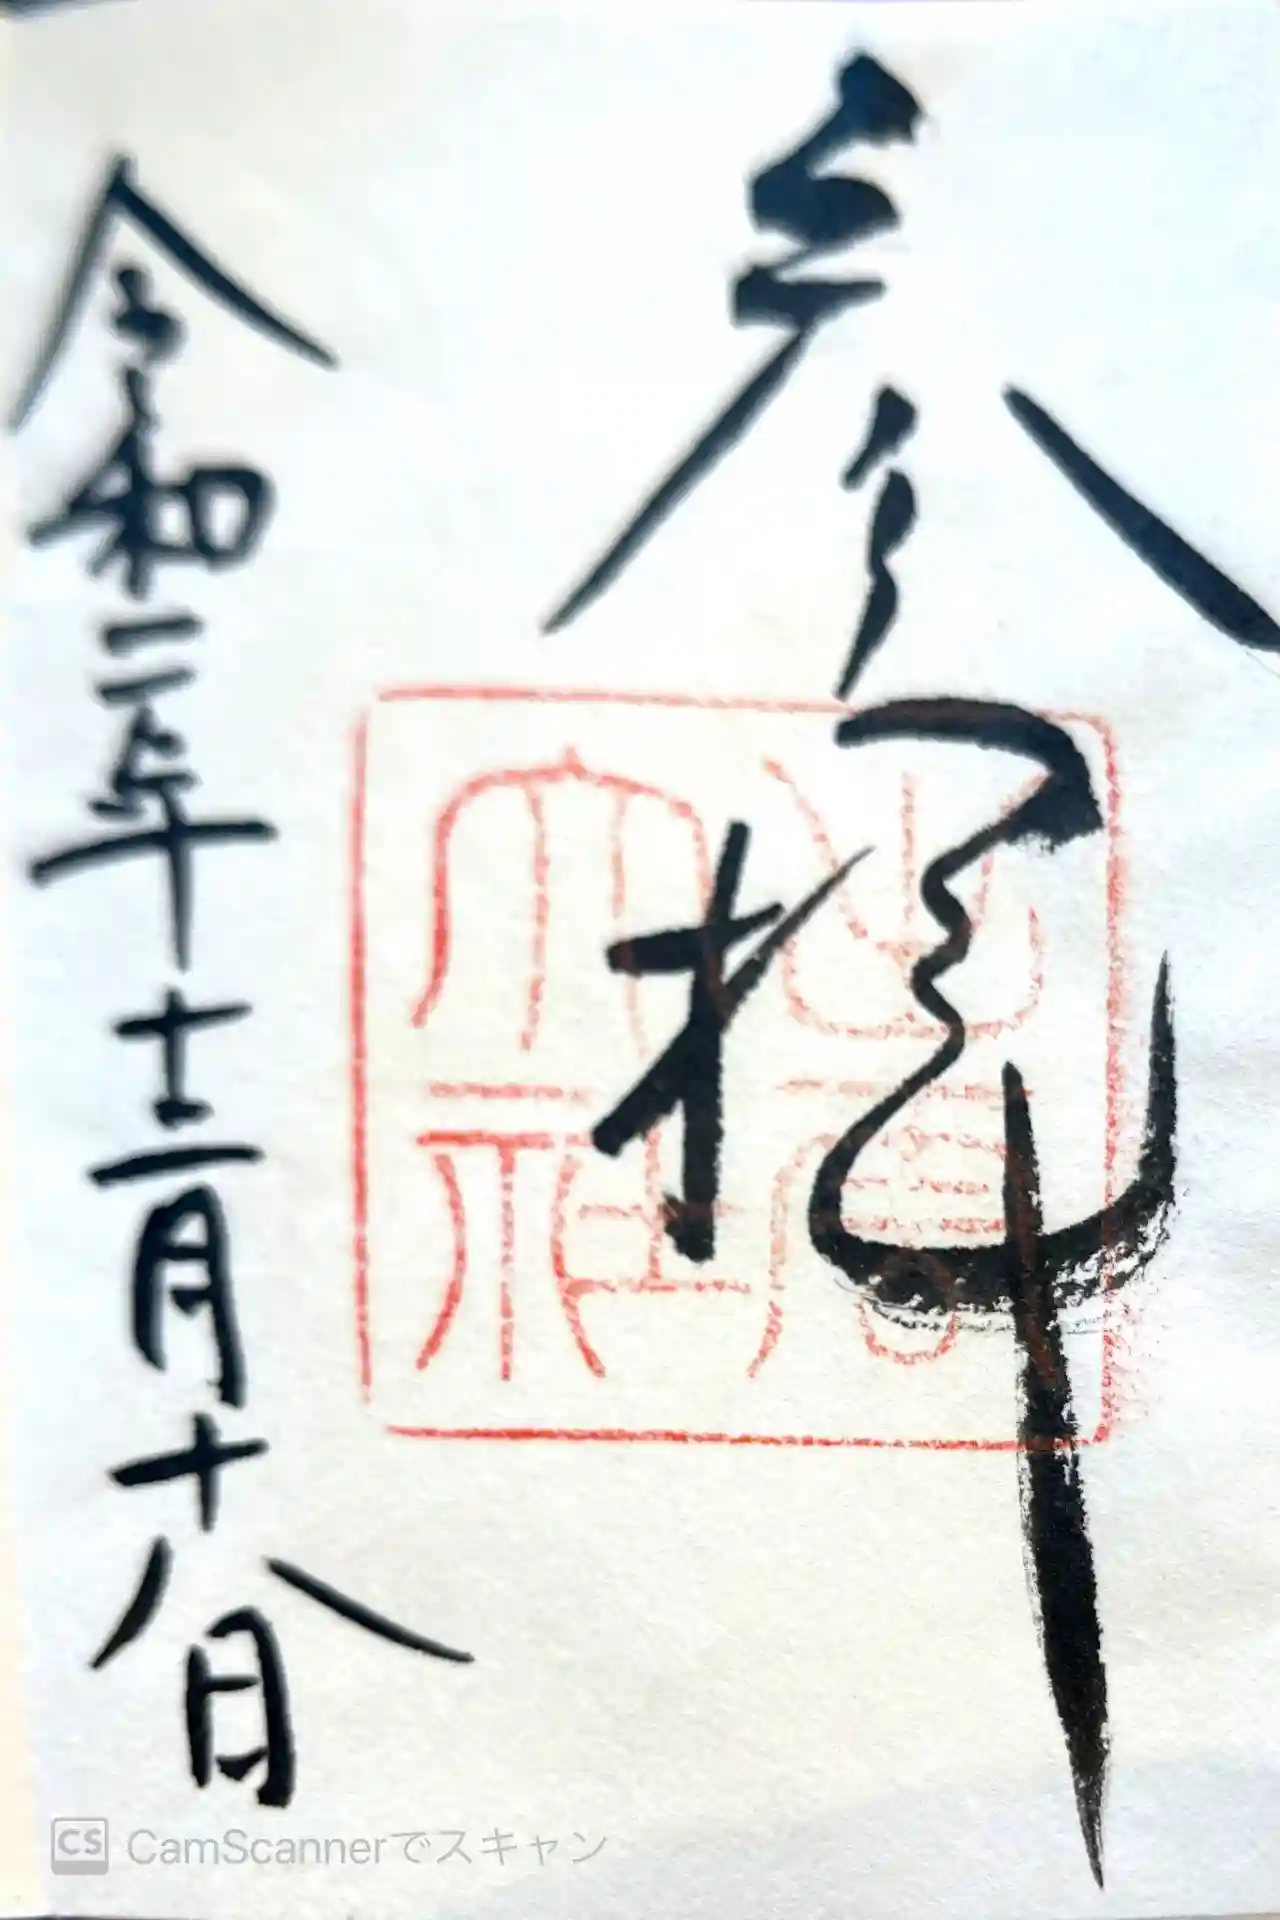 参拝
出雲
大社
令和二年十二月十八日
CamScannerでスキャン